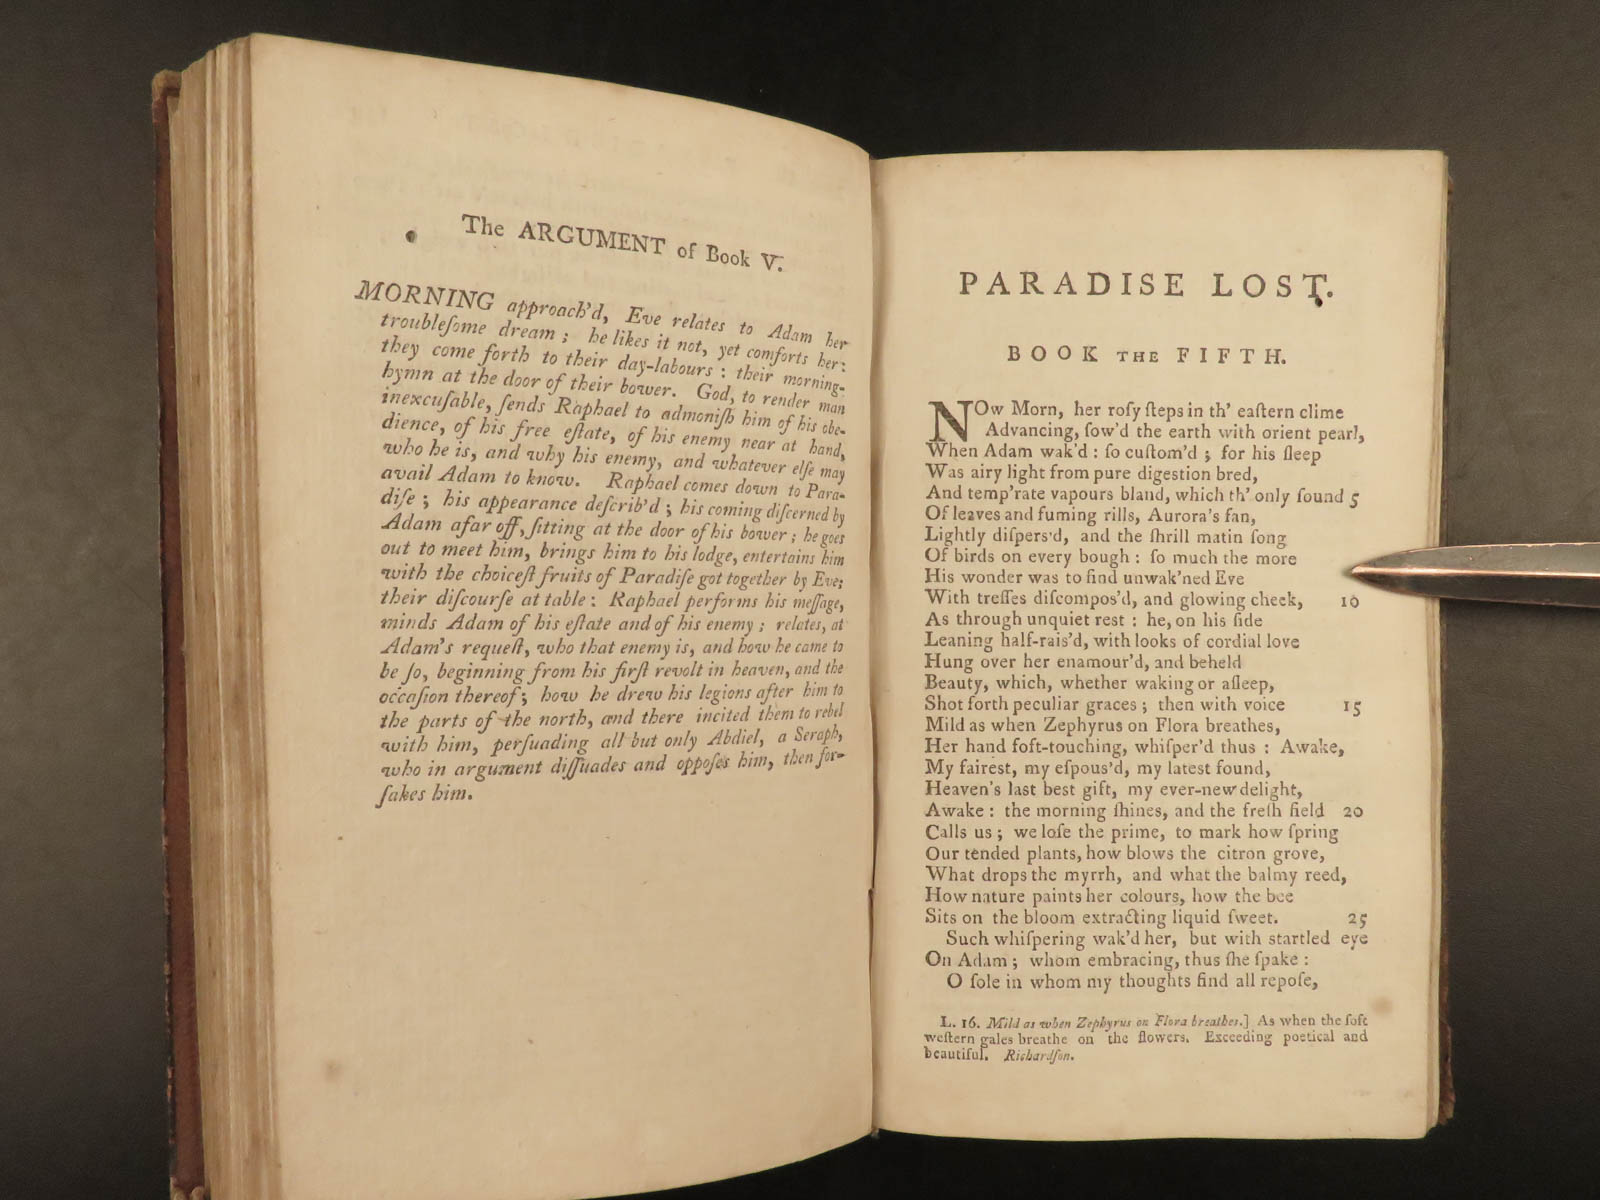 The ARGUMENT of Book V.
MORNING approach'd, Eve relates to Adam her
troubleſome dream ; he likes it not, yet comforts her:
they come forth to their day-labours : their morning-
hymn at the door of their bower. God, to render man
inexcuſable, ſends Raphael to admoniſh him of his obe-
dience, of his free eſtate, of his enemy near at hand,
who he is, and why his enemy, and whatever elſe may
avail Adam to know. Raphael comes down to Para-
diſe ; his appearance deſcrib'd ; his coming diſcerned by
Adam afar off, ſitting at the door of his bower ; he goes
out to meet him, brings him to his lodge, entertains him
with the choiceſt fruits of Paradiſe got together by Eve;
their diſcourſe at table : Raphael performs his meſſage,
minds Adam of his eſtate and of his enemy ; relates, at
Adam's requeſt, who that enemy is, and how he came to
be ſo, beginning from his firſt revolt in heaven, and the
occaſion thereof ; how he drew his legions after him to
the parts of the north, and there incited them to rebel
with him, perſuading all but only Abdiel, a Seraph,
who in argument diſſuades and oppoſes him, then for-
ſakes him.
PARADISE LOST.
BOOK THE FIFTH.
NOw Morn, her roſy ſteps in th' eaſtern clime
Advancing, ſow'd the earth with orient pearl,
When Adam wak'd : ſo cuſtom'd ; for his ſleep
Was airy light from pure digeſtion bred,
And temp'rate vapours bland, which th' only ſound 5
Of leaves and fuming rills, Aurora's fan,
Lightly diſpers'd, and the ſhrill matin ſong
Of birds on every bough : ſo much the more
His wonder was to find unwak'ned Eve
With treſſes diſcompos'd, and glowing cheek, 10
As through unquiet rest : he, on his ſide
Leaning half-rais'd, with looks of cordial love
Hung over her enamour'd, and beheld
Beauty, which, whether waking or aſleep,
Shot forth peculiar graces ; then with voice 15
Mild as when Zephyrus on Flora breathes,
Her hand ſoft-touching, whiſper'd thus : Awake,
My faireſt, my eſpous'd, my latest found,
Heaven's laſt best gift, my ever-new delight,
Awake : the morning ſhines, and the freſh field 20
Calls us ; we loſe the prime, to mark how ſpring
Our tended plants, how blows the citron grove,
What drops the myrrh, and what the balmy reed,
How nature paints her colours, how the bee
Sits on the bloom extracting liquid ſweet. 25
Such whiſpering wak'd her, but with startled eye
On Adam ; whom embracing, thus ſhe ſpake :
O ſole in whom my thoughts find all repoſe,
L. 16. Mild as when Zephyrus on Flora breathes.] As when the ſoft
weſtern gales breathe on the flowers. Exceeding poetical and
beautiful. Richardſon.